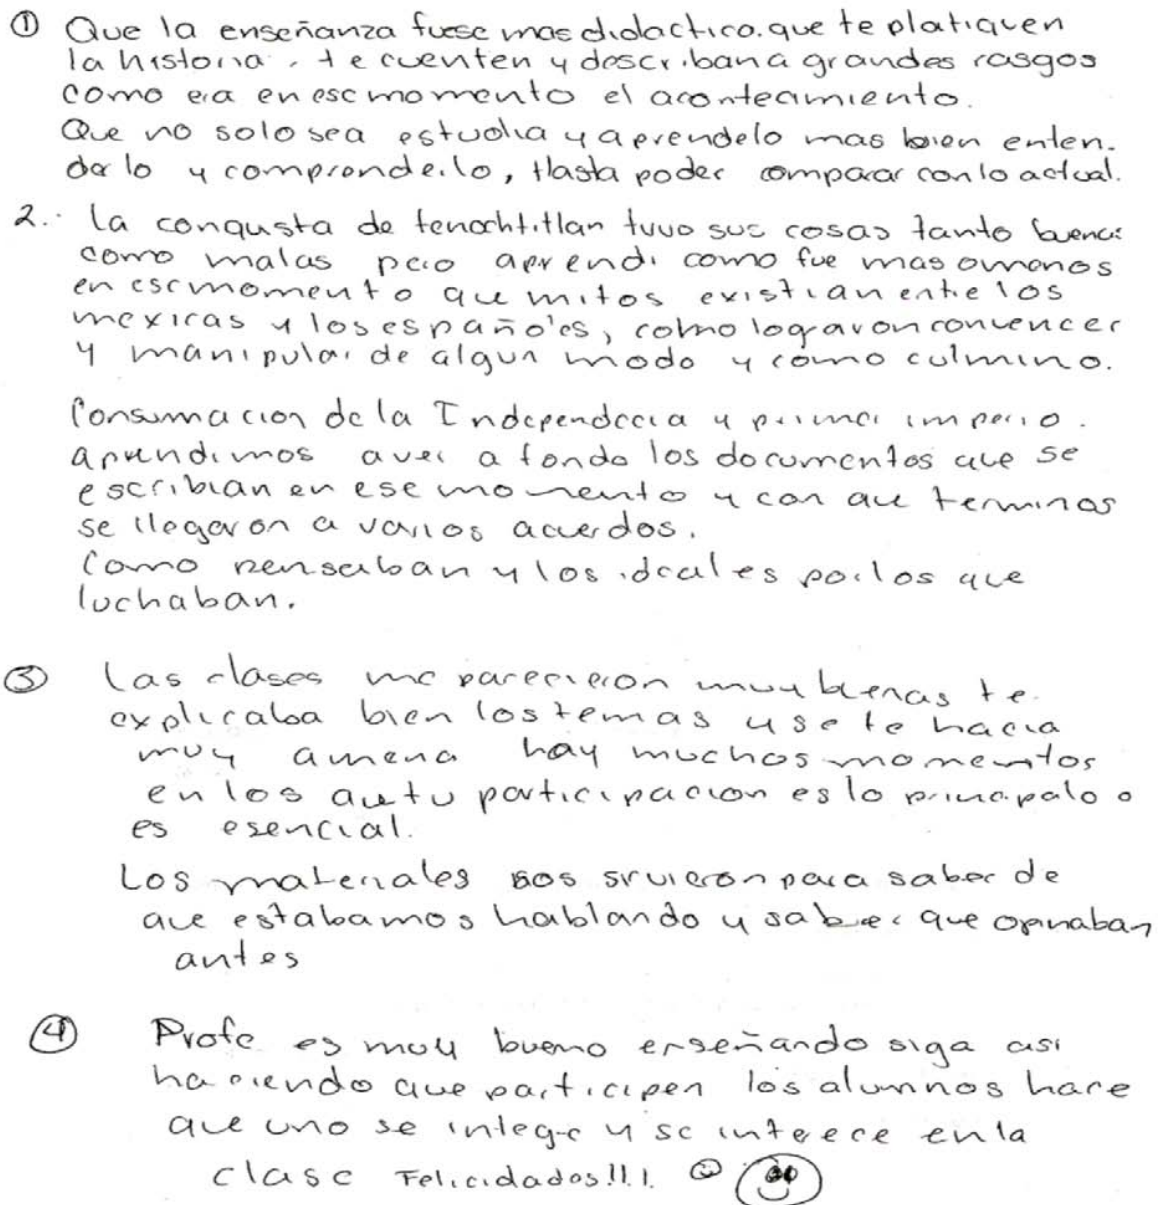 ① Que la enseñanza fuese mas didactico. que te platiquen
la historia, te cuenten y describan a grandes rasgos
como era en ese momento el acontecimiento.
Que no solo sea estudia y aprendelo mas bien enten-
derlo y comprenderlo, Hasta poder comparar con lo actual.
2.- La conquista de tenochtitlan tuvo sus cosas tanto buenas
como malas pero aprendi como fue mas o menos
en ese momento que mitos existian entre los
mexicas y los españoles, como lograron convencer
y manipular de algun modo y como culmino.
Consumacion de la Independecia y primer imperio.
aprendimos a ver a fondo los documentos que se
escribian en ese momento y con que terminos
se llegaron a varios acuerdos.
Como pensaban y los ideales por los que
luchaban.
③ Las clases me parecieron muy buenas te
explicaba bien los temas y se te hacia
muy amena hay muchos momentos
en los que tu participacion es lo principal o
es esencial.
Los materiales nos srvieron para saber de
que estabamos hablando y saber que opinaban
antes
④ Profe es muy bueno enseñando siga asi
haciendo que participen los alumnos hace
que uno se integre y se interece en la
clase Felicidades!!!.